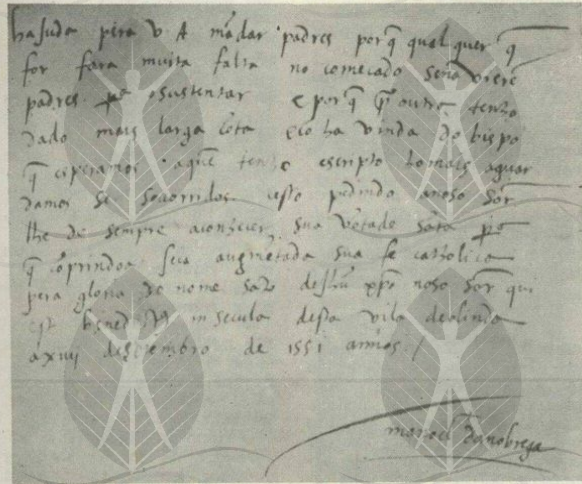 ha Juda pera V A mãdar padres por q̃ qual quer q̃
for fara muita falta no comecado se nã vierẽ
padres pᵃ o sustentar e por q̃ por outra tenho
dado mais larga cõta e cõ ha vinda do bispo
q̃ esperamos aquẽ tenho escripto ho mais aguar
damos ser socorridos cesso pedindo a noso Sõr
lhe de sempre aconhecer sua võtade sãta pᵃ
q̃ cõprindoa seia augmetada sua fe catholica
pera gloria do nome sãto de Jhũ xp̃o noso Sõr qui
est bened in secula desta vila dolinda
a xiiij de setembro de 1551 annos /
manoel da nobrega